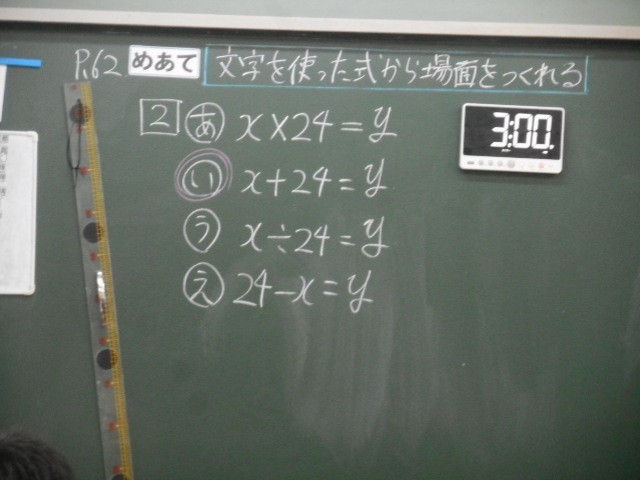 P.62 めあて 文字を使った式から場面をつくれる
2 あ x×24=y
3:00
い x+24=y
う x÷24=y
え 24-x=y